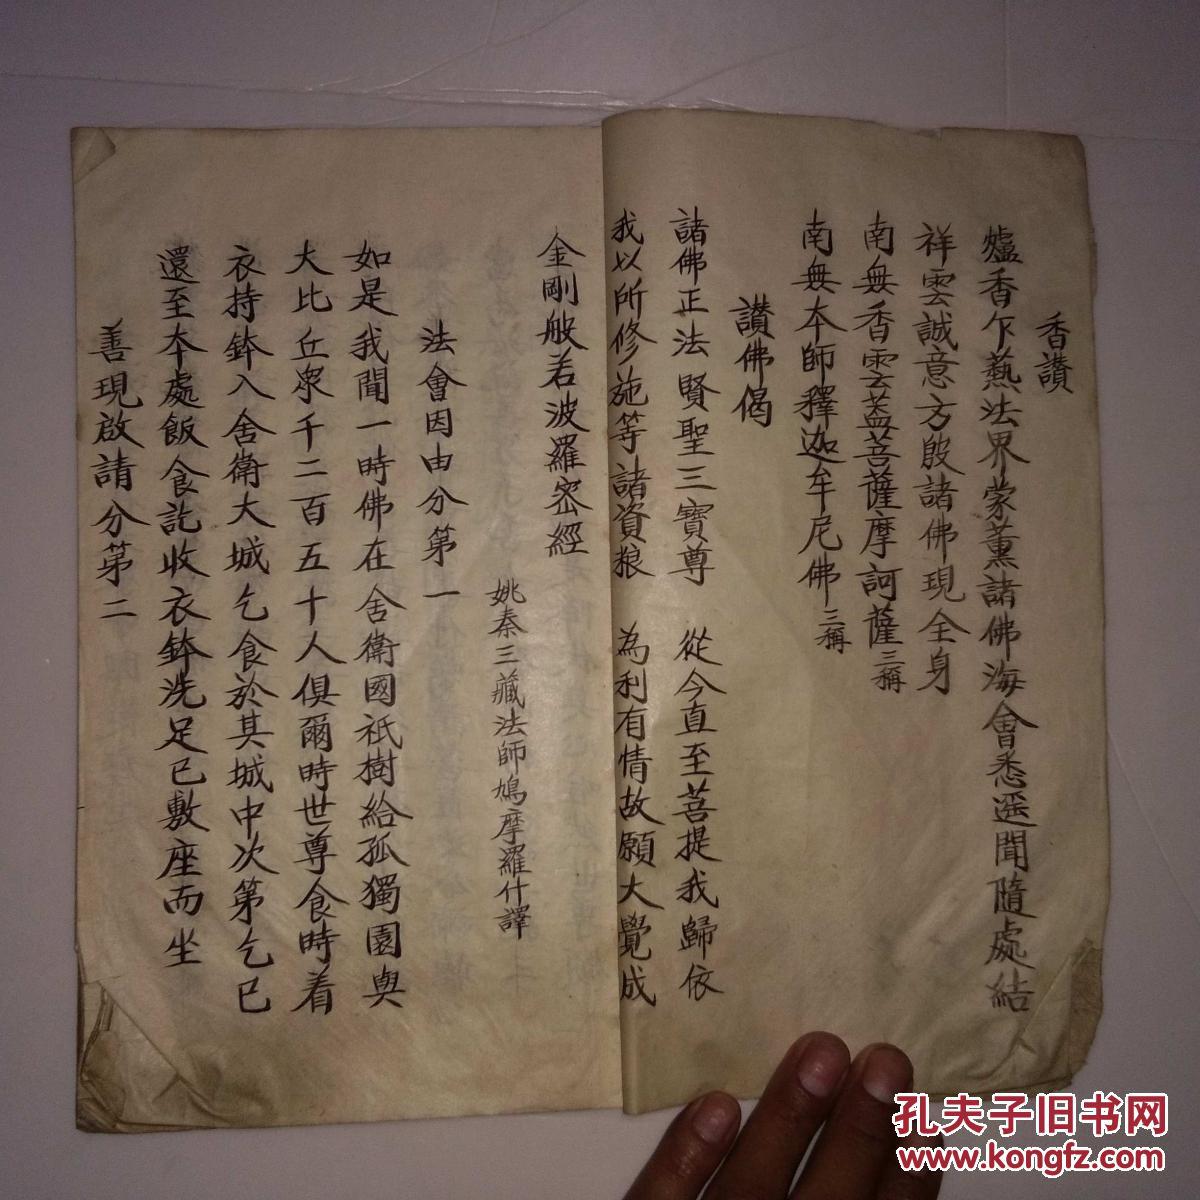 香讚
爐香乍爇法界蒙薰諸佛海會悉遥聞隨處結
祥雲誠意方殷諸佛現全身
南無香雲蓋菩薩摩訶薩三稱
南無本師釋迦牟尼佛三稱
讚佛偈
諸佛正法賢聖三寶尊 從今直至菩提我歸依
我以所修施等諸資粮 為利有情故願大覺成
金剛般若波羅密經
姚秦三藏法師鳩摩羅什譯
法會因由分第一
如是我聞一時佛在舍衛國祇樹給孤獨園與
大比丘衆千二百五十人俱爾時世尊食時着
衣持鉢入舍衛大城乞食於其城中次第乞已
還至本處飯食訖收衣鉢洗足已敷座而坐
善現啟請分第二
孔夫子旧书网
www.kongfz.com